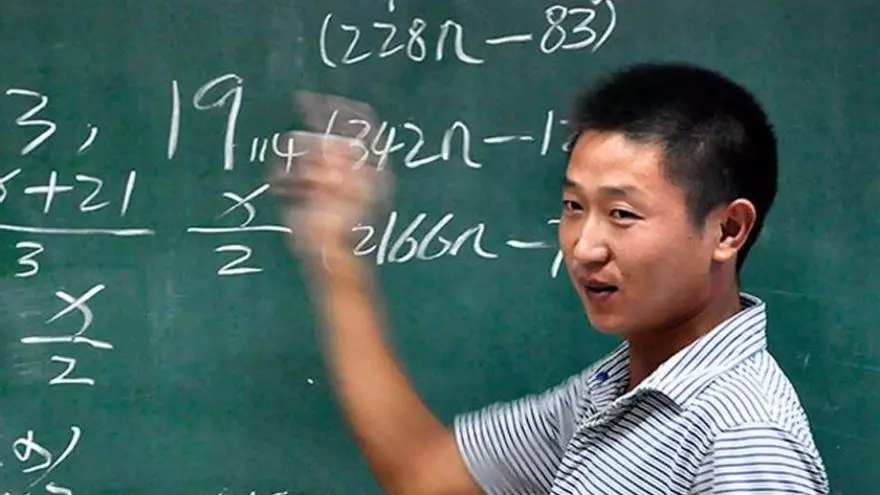 (228n-83)
3, 19, 114 (342n-1
+21
3
x
2
(2166n-
x
2